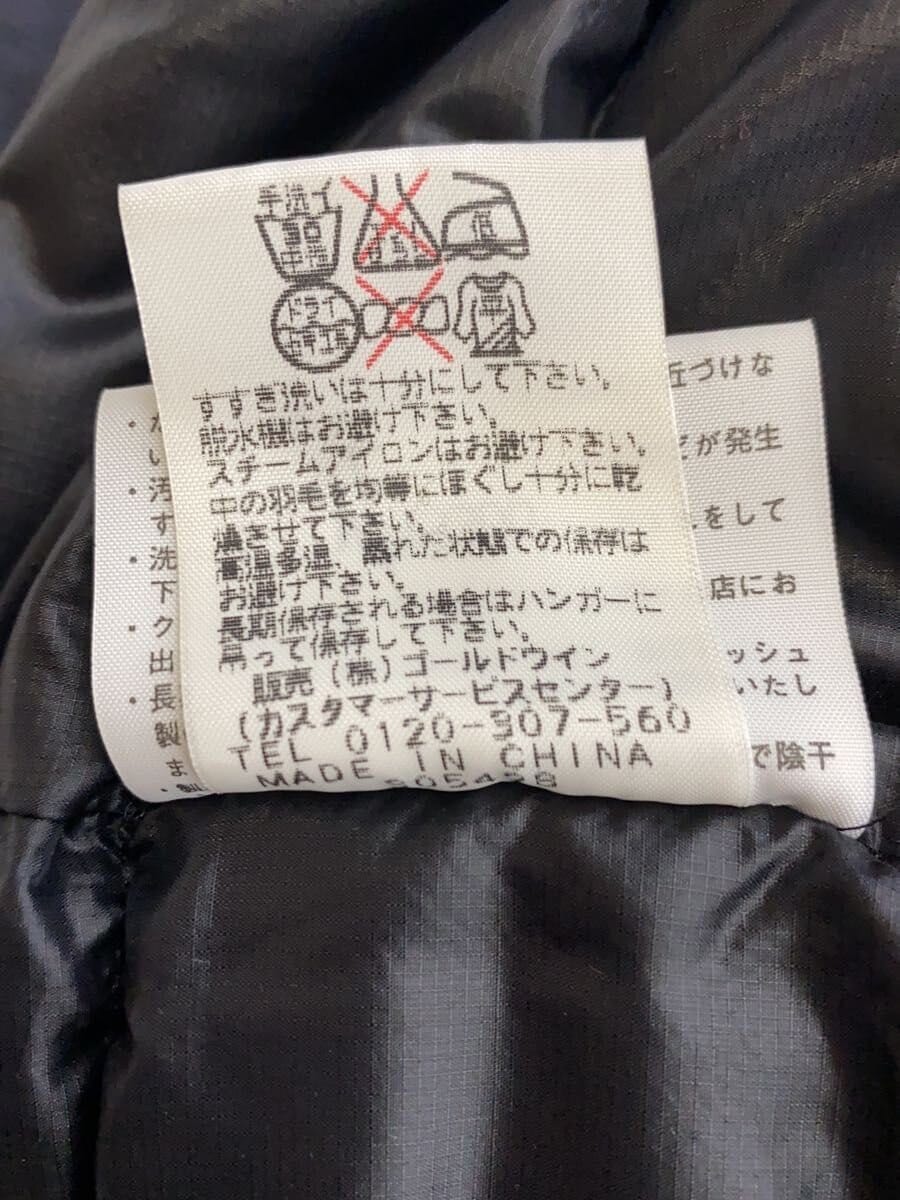 手洗イ
30
中性
エンソ
サラシ
低
ドライ
セキユ系
すすぎ洗いは十分にして下さい。
脱水機はお避け下さい。
スチームアイロンはお避け下さい。
中の羽毛を均等にほぐし十分に乾
燥させて下さい。
高温多湿、濡れた状態での保存は
お避け下さい。
長期保存される場合はハンガーに
吊って保存して下さい。
販売(株)ゴールドウイン
(カスタマーサービスセンター)
TEL 0120-307-560
MADE IN CHINA
近づけな
が発生
をして
店にお
ッシュ
いたし
で陰干
・
い
・汚
す
・洗
下
・ク
出
・長
製
ま